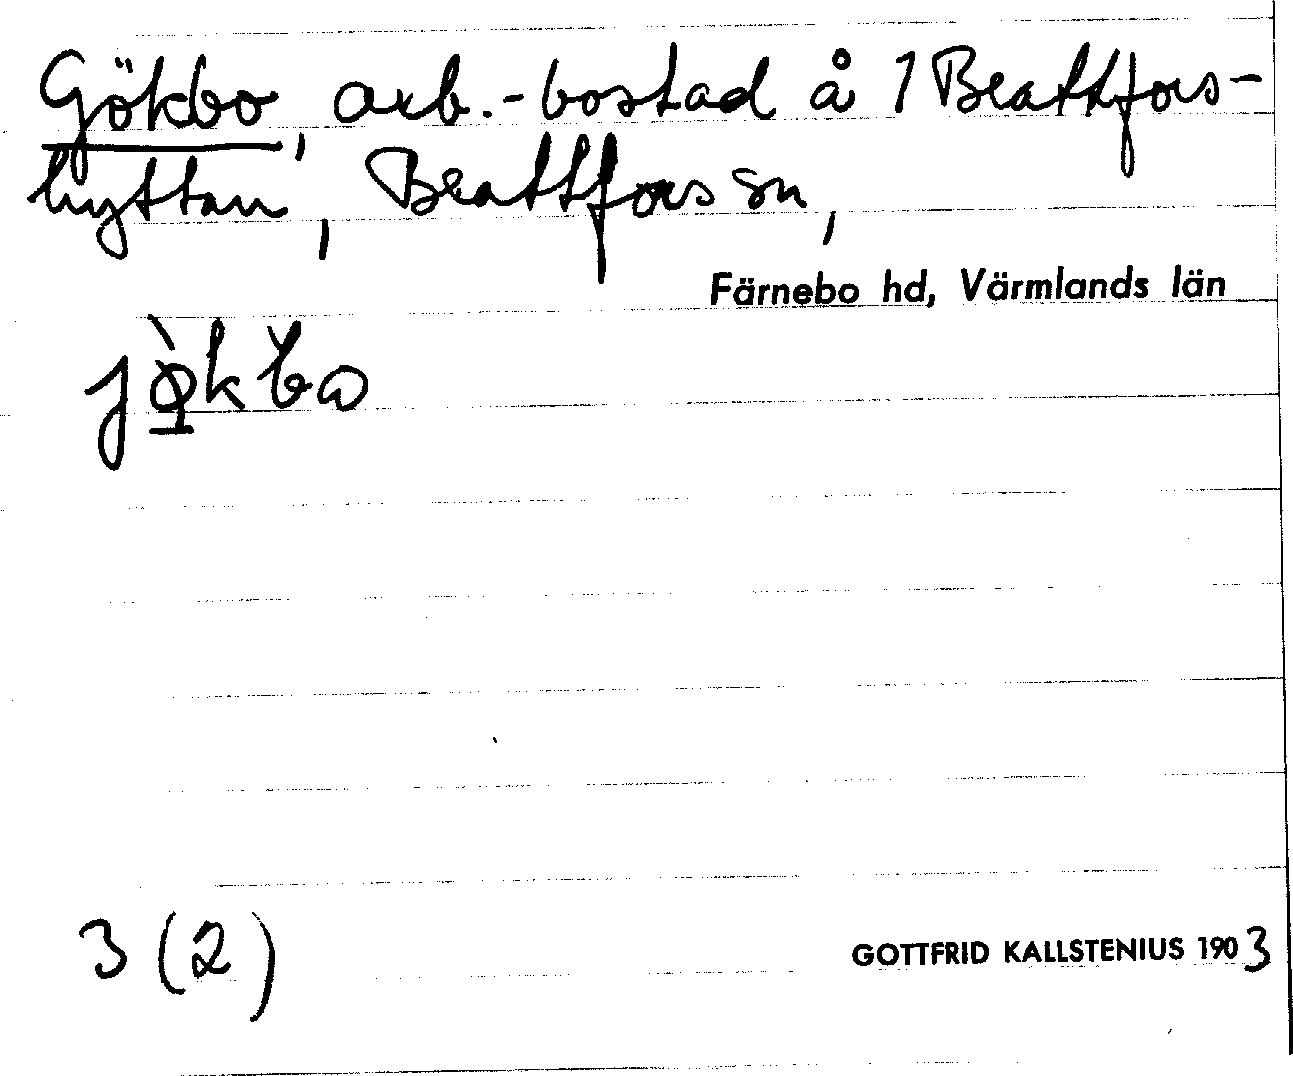 Gökbo, arb.-bostad å 1 Beattfors-
hyttan, Beattfors sn,
Färnebo hd, Värmlands län
jø̀kbo
3 (2)
GOTTFRID KALLSTENIUS 1903